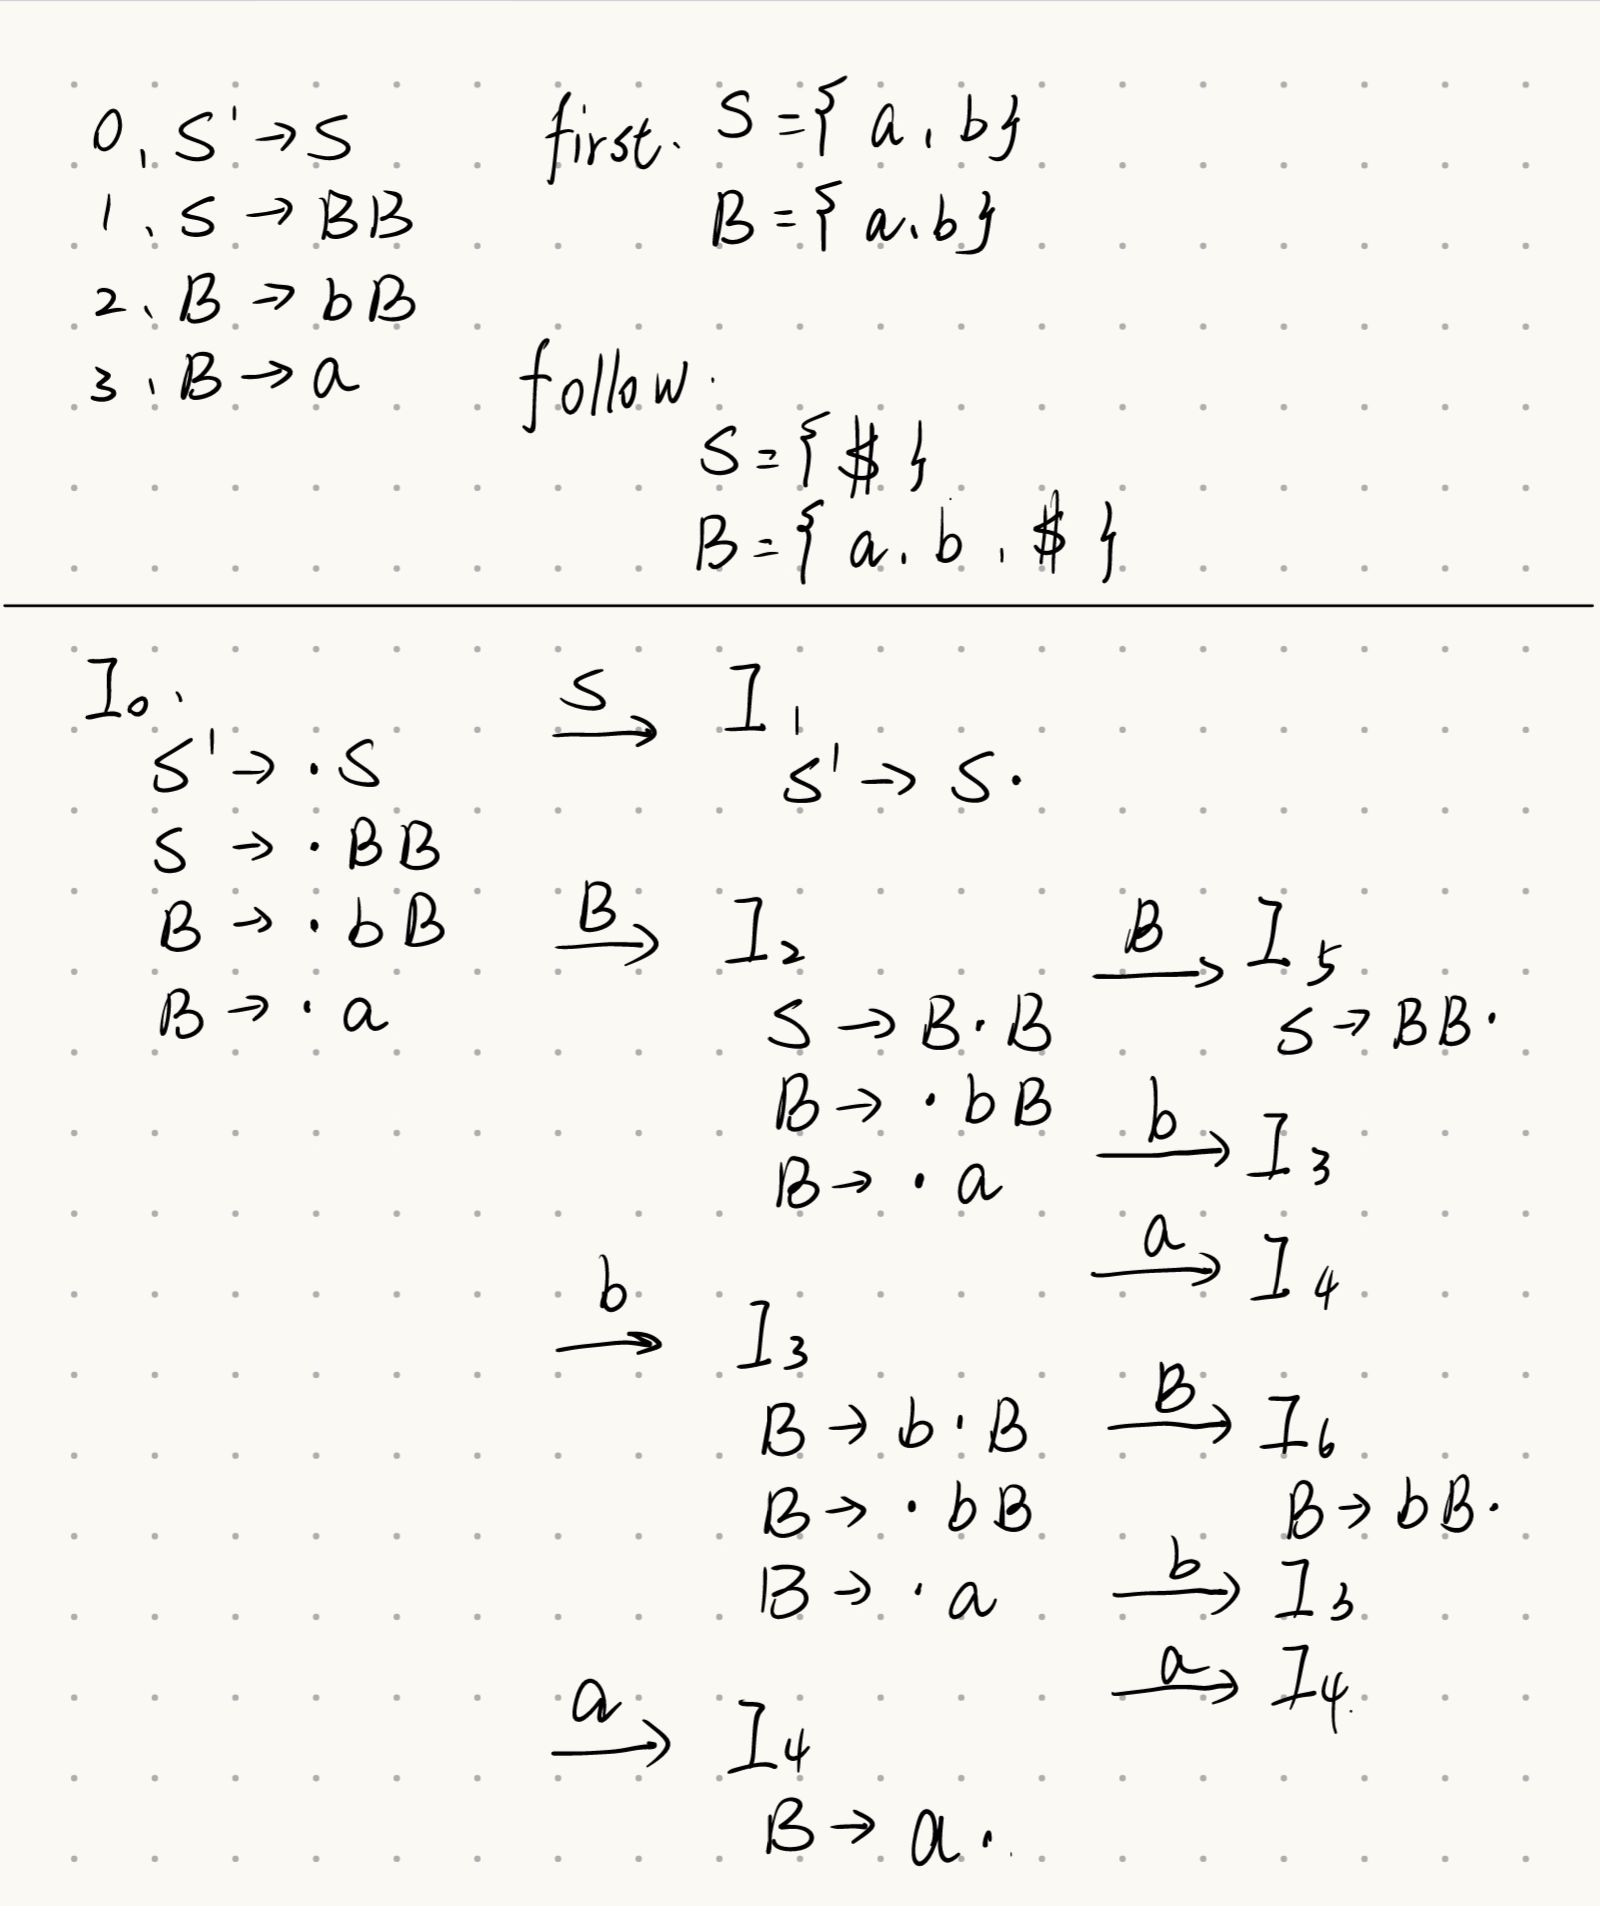 0、S'→S
1、S→BB
2、B→bB
3、B→a
first. S={a, b}
B={a, b}
follow.
S={$}
B={a, b, $}
I0.
S'→·S
S→·BB
B→·bB
B→·a
S→ I1
S'→S·
B→ I2
S→B·B
B→·bB
B→·a
B→ I5
S→BB·
b→ I3
a→ I4
b→ I3
B→b·B
B→·bB
B→·a
B→ I6
B→bB·
b→ I3
a→ I4
a→ I4
B→a·